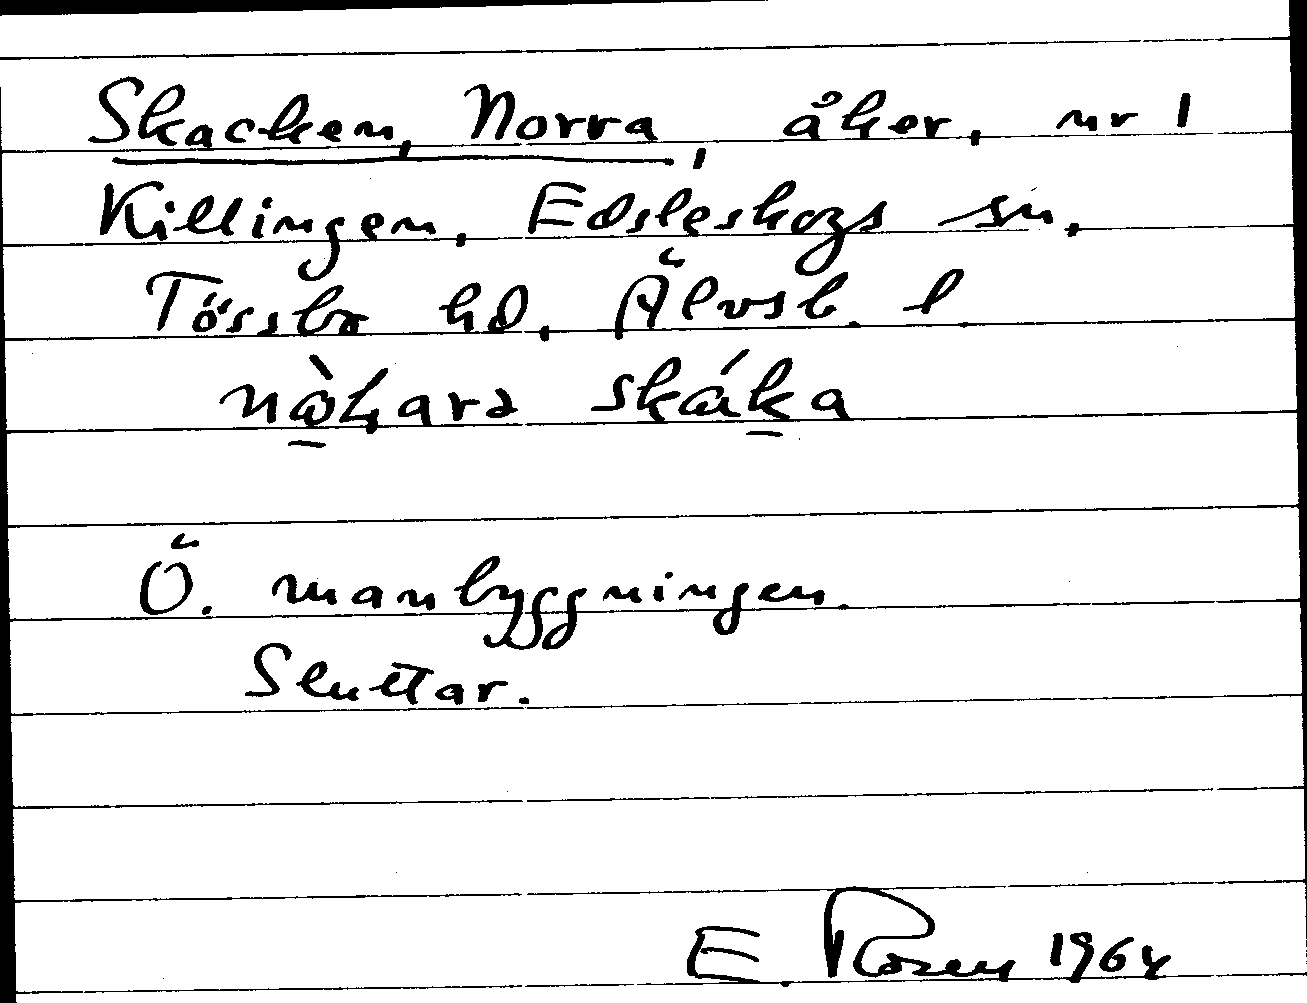 Skacken, Norra, åker, nr 1
Killingen, Edsleskogs sn,
Tössbo hd, Älvsb. l
skáka
Ö. manbyggningen.
Sluttar.
E. Rosen 1964